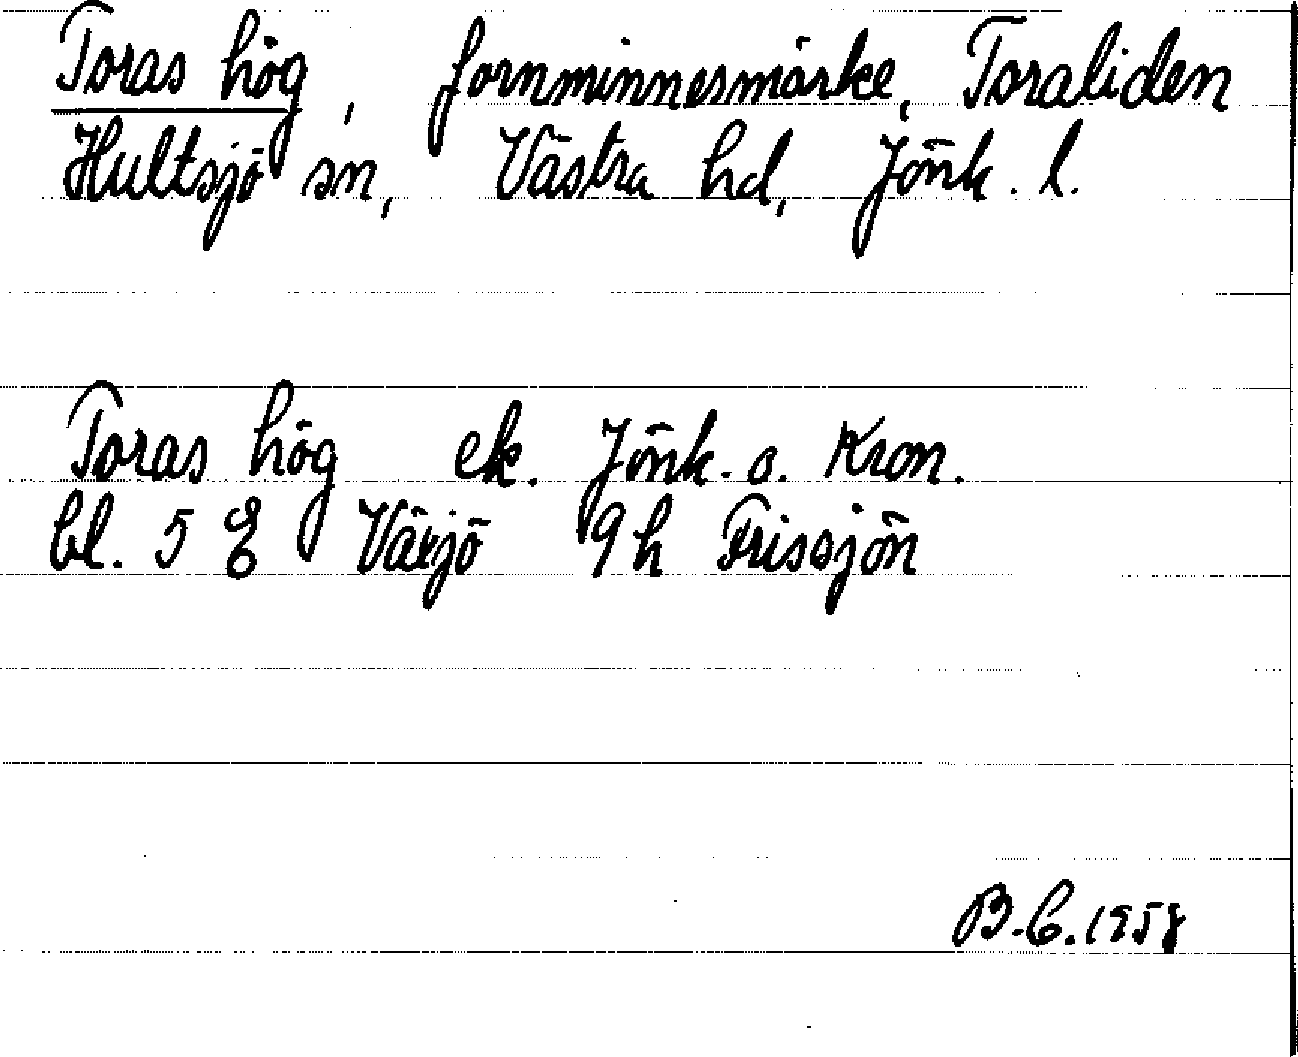 Toras hög, fornminnesmärke, Toraliden
Hultsjö sn, Västra hd, Jönk. l.
Toras hög ek. Jönk. o. Kron.
bl. 5 E Växjö 9h Frissjön
B.C. 1958